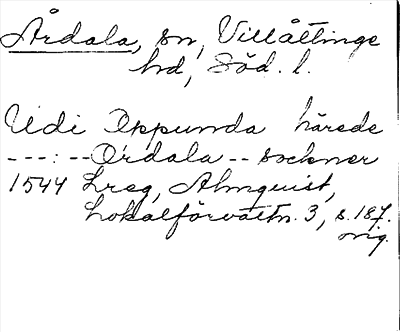 Årdala, sn, Villåttinge
hd, Söd. l.
Udi Oppunda härede
---:--Ordala-- sockner
1544 Lreg, Almquist,
Lokalförvaltn. 3, s. 187.
orig.